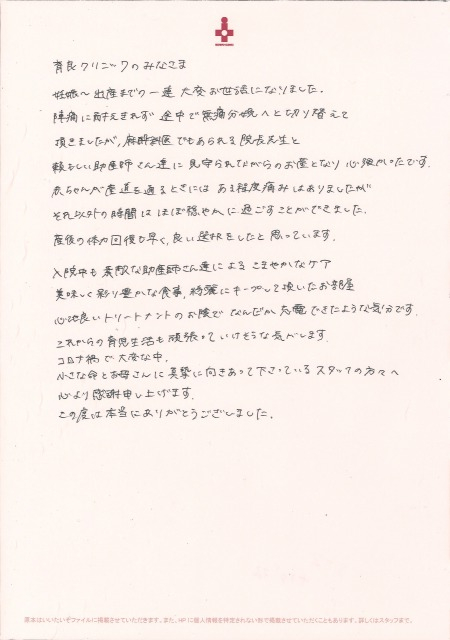 育良クリニックのみなさま
妊娠〜出産までの一連 大変お世話になりました。
陣痛に耐えきれず 途中で無痛分娩へと切り替えて
頂きましたが、麻酔科医でもあられる院長先生と
頼もしい助産師さん達に見守られてながらのお産となり 心強かったです。
赤ちゃんが産道を通るときにはある程度痛みはありましたが
それ以外の時間はほぼ穏やかに過ごすことができました。
産後の体力回復も早く、良い選択をしたと思っています。
入院中も素敵な助産師さん達によるこまやかなケア
美味しく彩り豊かな食事、綺麗にキープして頂いたお部屋
心地良いトリートメントのお陰でなんだか充電できたような気分です。
これからの育児生活も頑張っていけそうな気がします。
コロナ禍で大変な中、
小さな命とお母さんに真摯に向きあって下さっているスタッフの方々へ
心より感謝申し上げます。
この度は本当にありがとうございました。
原本はいいたいぞファイルに掲載させていただきます。また、HPに個人情報を特定されない形で掲載させていただくこともあります。詳しくはスタッフまで。